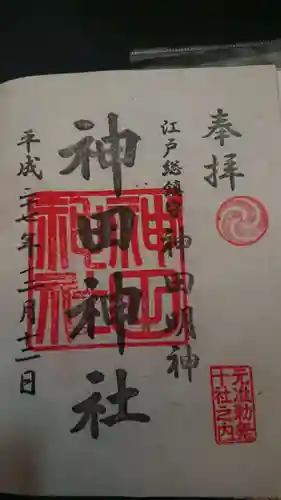 奉拝
江戸総鎮守 神田明神
神田神社
平成二十七年十二月十二日
元准勅祭
十社之内
神田神社